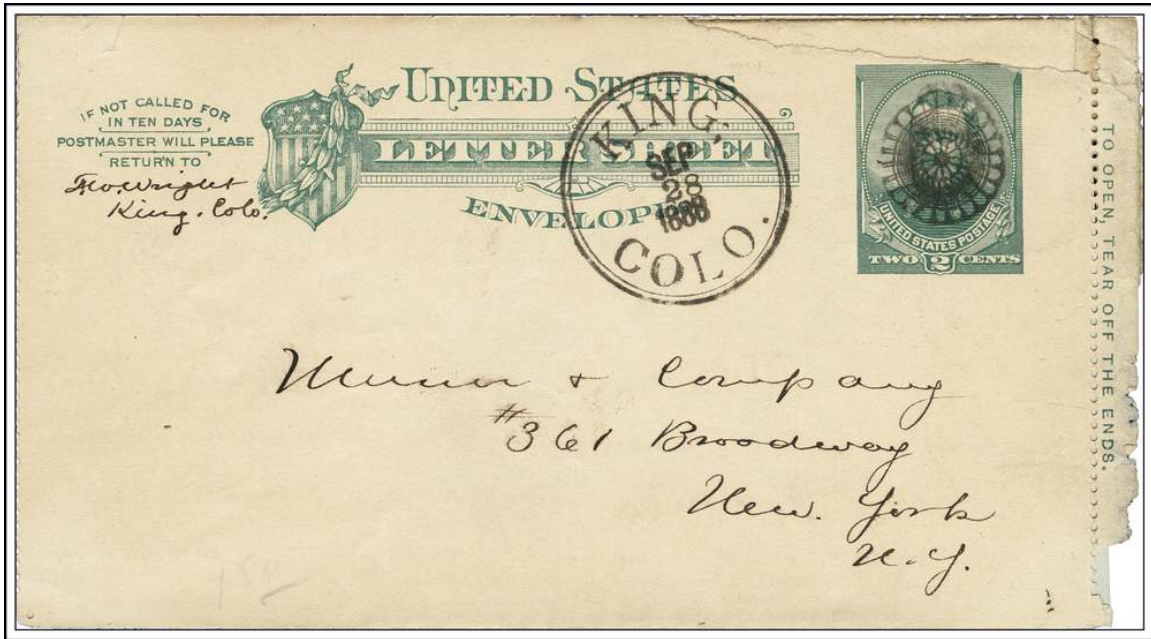 IF NOT CALLED FOR
IN TEN DAYS
POSTMASTER WILL PLEASE
RETURN TO
Wright
King. Colo.
UNITED STATES
LETTER SHEET
ENVELOPE
KING,
SEP
28
1888
COLO.
UNITED STATES POSTAGE
TWO 2 CENTS
TO OPEN, TEAR OFF THE ENDS.
Munn + Company
#361 Broadway
New. York
N.Y.